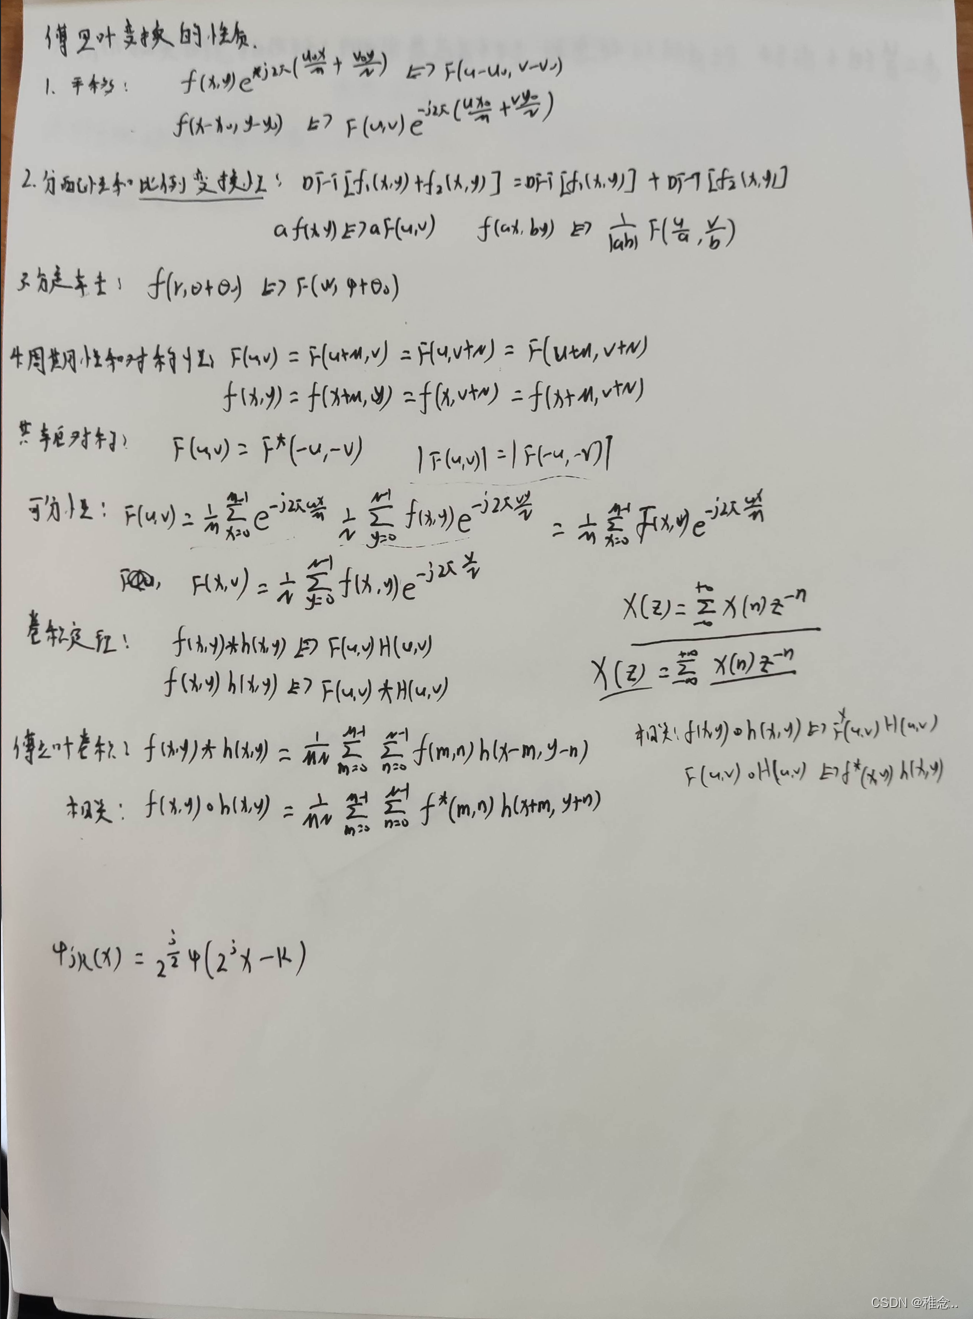 傅里叶变换的性质.
1. 平移: f(x,y)e^{j2π(u₀x/M + v₀y/N)} ⇔ F(u-u₀, v-v₀)
f(x-x₀, y-y₀) ⇔ F(u,v)e^{-j2π(ux₀/M + vy₀/N)}
2. 分配性和比例变换性: DFT[f₁(x,y)+f₂(x,y)] = DFT[f₁(x,y)] + DFT[f₂(x,y)]
af(x,y) ⇔ aF(u,v) f(ax,by) ⇔ 1/|ab| F(u/a, v/b)
3. 旋转: f(r,θ+θ₀) ⇔ F(w,φ+θ₀)
4. 周期性和对称性: F(u,v) = F(u+M,v) = F(u,v+N) = F(u+M,v+N)
f(x,y) = f(x+M,y) = f(x,v+N) = f(x+M,v+N)
共轭对称: F(u,v) = F*(-u,-v) |F(u,v)| = |F(-u,-v)|
可分性: F(u,v) = 1/M ∑_{x=0}^{M-1} e^{-j2πux/M} 1/N ∑_{y=0}^{N-1} f(x,y)e^{-j2πvy/N} = 1/M ∑_{x=0}^{M-1} F(x,v)e^{-j2πux/M}
F(x,v) = 1/N ∑_{y=0}^{N-1} f(x,y)e^{-j2πv/N}
X(z) = ∑_{-∞}^{+∞} X(n)z^{-n}
卷积定理: f(x,y)*h(x,y) ⇔ F(u,v)H(u,v)
X(z) = ∑_{-∞}^{+∞} X(n)z^{-n}
f(x,y)h(x,y) ⇔ F(u,v)*H(u,v)
傅立叶卷积: f(x,y)*h(x,y) = 1/MN ∑_{m=0}^{M-1} ∑_{n=0}^{N-1} f(m,n)h(x-m,y-n)
相关: f(x,y)∘h(x,y) ⇔ F*(u,v)H(u,v)
F(u,v)∘H(u,v) ⇔ f*(x,y)h(x,y)
相关: f(x,y)∘h(x,y) = 1/MN ∑_{m=0}^{M-1} ∑_{n=0}^{N-1} f*(m,n)h(x+m,y+n)
ψjk(x) = 2^{j/2}ψ(2^j x-k)
CSDN @稚念..